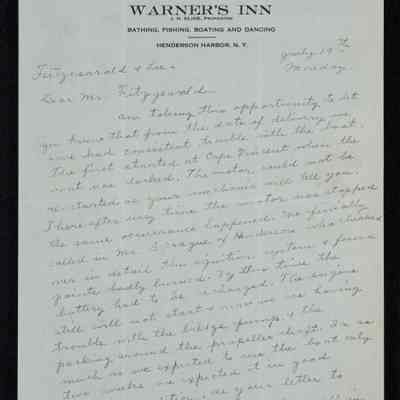 WARNER'S INN
J. H. Proprietor
BATHING, FISHING, BOATING AND DANCING
HENDERSON HARBOR, N. Y.
July 19th
Monday
Fitzgerald & Lee
Dear Mr. Fitzgerald
am taking this opportunity to let
you know that from the date of delivery we
have had consistent trouble with the boat.
The first started at Cape Vincent when the
boat was docked. The motor could not be
re-started as your mechanic will tell you.
There after every time the motor was stopped
the same occurrence happened. We finally
called in Mr. Sprague of Henderson who checked
over in detail the ignition system & found
points badly burned. By this time the
battery had to be re-charged. The engine
still will not start & now we are having
trouble with the bilge pump & the
packing around the propeller shaft. In as
much as we expected to use the boat only
two weeks we expected it in good
your letter to